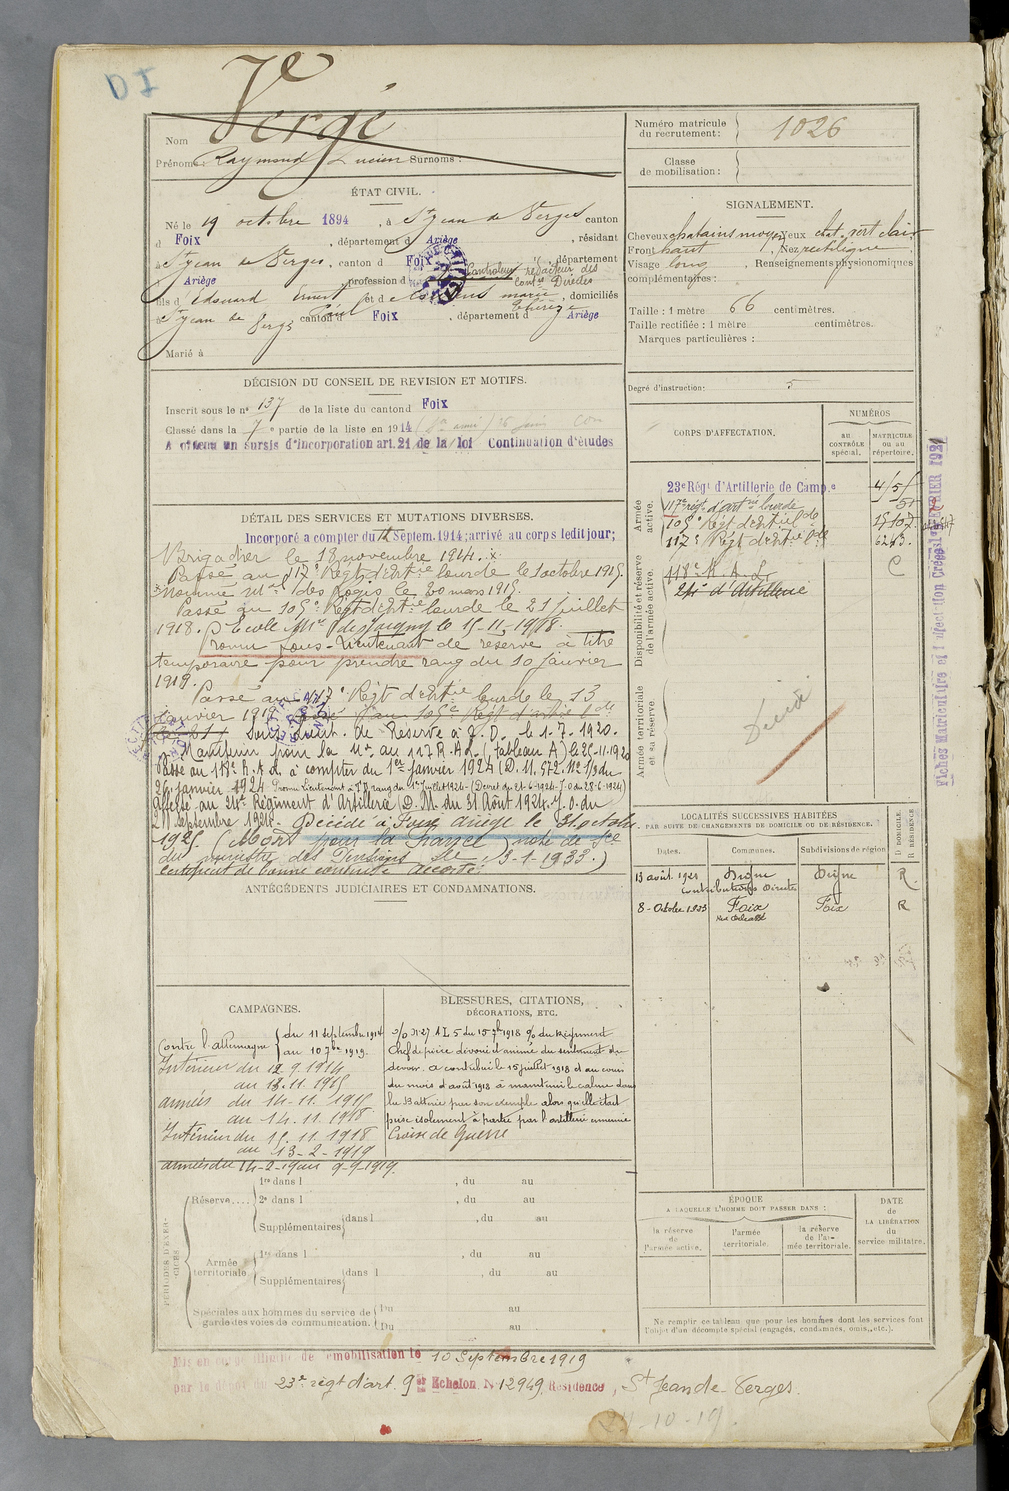 DI
Vergé
Nom
Prénoms : Raymond Lucien Surnoms :
Numéro matricule
du recrutement : 1026
Classe
de mobilisation :
ÉTAT CIVIL.
Né le 19 octobre 1894, à St Jean de Verges canton
d Foix, département d Ariège, résidant
à St Jean de Verges, canton d Foix, département
d Ariège, profession d Contrôleur rédacteur des
Contons Directes
fils d Edouard Ernest Paul et d marie Thérèse, domiciliés
à St Jean de Verges canton d Foix, département d Ariège
Marié à
SIGNALEMENT.
Cheveux chatains moyen Yeux chat. vert clair
Front haut, Nez rectiligne
Visage long, Renseignements physionomiques
complémentaires :
Taille : 1 mètre 66 centimètres.
Taille rectifiée : 1 mètre centimètres.
Marques particulières :
Degré d'instruction: 5
DÉCISION DU CONSEIL DE REVISION ET MOTIFS.
Inscrit sous le no 137 de la liste du canton d Foix
Classé dans la 7e partie de la liste en 1914
A obtenu un sursis d'incorporation art. 21 de la loi Continuation d'études
DÉTAIL DES SERVICES ET MUTATIONS DIVERSES.
Incorporé a compter du 12 Septem. 1914; arrivé au corps ledit jour;
Brigadier le 18 novembre 1914.
Passé au 117e Régt d'Artie lourde le 1 octobre 1915.
Nommé Mal des Logis le 20 mars 1915.
Passé au 105e Régt d'Artie lourde le 21 juillet
1918. Ecole Mre de Joigny le 15-11-1918.
Promu Sous-Lieutenant de réserve à titre
temporaire pour prendre rang du 10 janvier
1919.
Passé au 117e Régt d'Artie lourde le 13
janvier 1919. Passé au 105e Régt d'Artie lde
Sous Lieut. de Réserve à T. D. le 1-7-1920.
Maintenu pour la Mon au 117 R.A.L. (Tableau A) le 25-11-1920
Passé au 118e R.A.L. à compter du 1er janvier 1924 (D.M. 572. No 1/3 du
26 janvier 1924 Promu Lieutenant à T.D rang du 1er Juillet 1924 - (Décret du 21-6-1924 - J.O du 28-6-1924)
Affecté au 24e Régiment d'Artillerie (D.M. du 31 Août 1924. J.O. du
21 Septembre 1924. Décédé à Foix Ariège le 31 octobre
1925. (Mort pour la France) note de Sce
du ministre des Pensions du 3-1-1933.)
Certificat de bonne conduite accordé.
CORPS D'AFFECTATION.
NUMÉROS
AU
CONTRÔLE
spécial.
MATRICULE
OU AU
répertoire.
Armée
active.
23e Régt d'Artillerie de Camp.e
117e régt. d'artie lourde
105e Régt d'Artie lde
117e Régt d'Artie lde
6243.
Disponibilité et réserve
de l'armée active.
118e R.A.L.
C
Armée territoriale
et sa réserve.
Décédé
Fiches Matriculaire et d'affection Créées le FEVRIER 1921
LOCALITÉS SUCCESSIVES HABITÉES
PAR SUITE DE CHANGEMENTS DE DOMICILE OU DE RÉSIDENCE.
D DOMICILE
R RÉSIDENCE
Dates. Communes. Subdivisions de région
13 août 1921 Digne Digne R.
Contributions Directes
8 - Octobre 1923 Foix Foix R
ANTÉCÉDENTS JUDICIAIRES ET CONDAMNATIONS.
CAMPAGNES.
Contre l'allemagne { du 11 septembre 1914
au 10 7bre 1919.
Intérieur du 12.9.1914
au 13.11.1915
armées du 14-11-1915
au 14.11.1918
Intérieur du 15.11.1918
au 13-2-1919
armées du 14-2-19 au 9-9-1919.
BLESSURES, CITATIONS,
DÉCORATIONS, ETC.
Chef de pièce dévoué et animé du sentiment du
devoir. a contribué le 15 juillet 1918 et au cours
du mois d'août 1918 à maintenir le calme dans
la Batterie par son exemple alors qu'elle était
prise isolement à partie par l'artillerie ennemie
Croix de Guerre
PÉRIODES D'EXERCICES
Réserve....
1re dans l , du au
2e dans l , du au
Supplémentaires { dans l , du au
Armée
territoriale
1re dans l , du au
Supplémentaires { dans l , du au
Spéciales aux hommes du service de
garde des voies de communication. { Du au
Du au
ÉPOQUE
A LAQUELLE L'HOMME DOIT PASSER DANS :
la réserve
de
l'armée active.
l'armée
territoriale.
la réserve
de l'armée territoriale.
DATE
de
LA LIBÉRATION
du
service militaire.
Ne remplir ce tableau que pour les hommes dont les services font
l'objet d'un décompte spécial (engagés, condamnés, omis, etc.).
Mis en congé illimité de démobilisation le 10 Septembre 1919
par le dépôt du 23e régt d'art. 9e Echelon No 12949 Résidence, St Jean de Verges.
24-10-19.